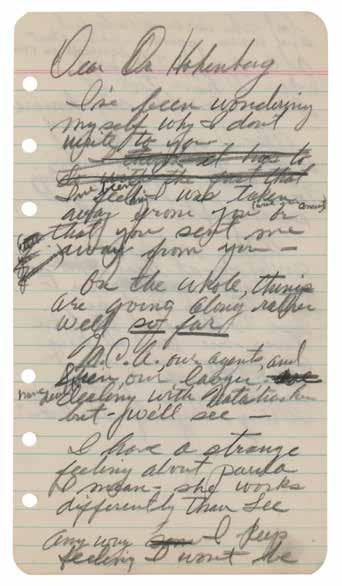 Dear Dr Hohenberg
I've been wondering
myself why I don't
write to you
I think it has to
do with the fact that
I've been
feeling I was taken
away from you or
that you sent me
away from you —
On the whole, things
are going along rather
well so far
M.C.A., our agents, and
Stein, our lawyer
have been
dealing with
but – we'll see –
I have a strange
feeling about Paula
I mean – she works
differently than Lee
any way I keep
feeling I won't be